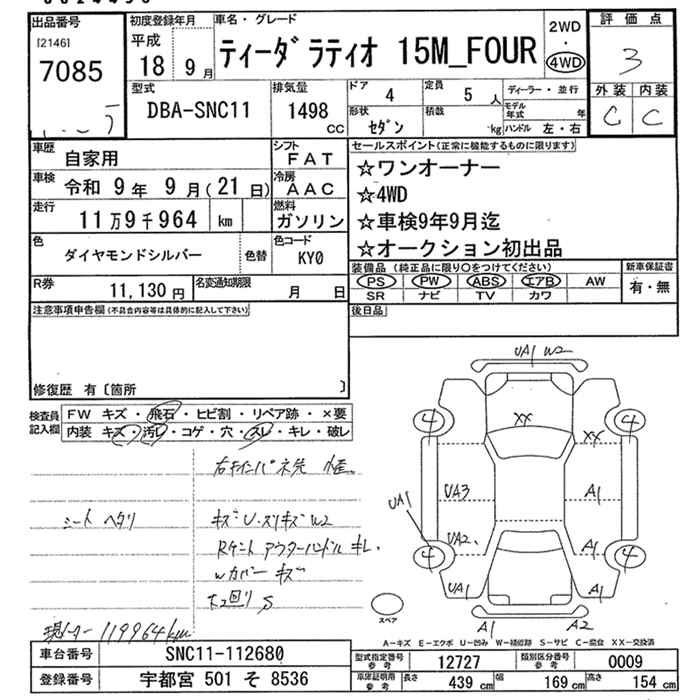 出品番号
[2146]
7085
初度登録年月
平成
18 9月
車名・グレード
ティーダラティオ 15M_FOUR
2WD
・
4WD
評価点
3
外装 内装
C C
型式
DBA-SNC11
排気量
1498
CC
ドア
4
定員
5 人
形状
セダン
積数
kg
ディーラー・並行
モデル
年式 年
ハンドル 左・右
車歴
自家用
シフト
FAT
車検
令和 9年 9月(21日)
冷房
AAC
走行
11万9千964 km
燃料
ガソリン
色
ダイヤモンドシルバー
色替
色コード
KY0
R券
11,130円
名変通知期限
月 日
セールスポイント(正常に機能するものに限ります)
☆ワンオーナー
☆4WD
☆車検9年9月迄
☆オークション初出品
装備品(純正品に限り○をつけてください)
PS PW ABS エアB AW
SR ナビ TV カワ
新車保証書
有・無
注意事項申告欄(不具合内容等は具体的に記入して下さい)
後日品
修復歴 有〔箇所 〕
検査員
記入欄
FW キズ・飛石・ヒビ割・リペア跡・×要
内装 キズ・汚レ・コゲ・穴・スレ・キレ・破レ
シート ヘタリ
キズU・スリキズW2
Rゲート アウターハンドル キレ.
Wカバー キズ
下回りS
現メーター 119964km
UA1 W2
XX
4
4
XX
UA3
A1
UA1
UA2
A1
4
4
UA1
A1
スペア
A1
A2
A-キズ E-エクボ U-凹み W-補修跡 S-サビ C-腐食 XX-交換済
車台番号
SNC11-112680
登録番号
宇都宮 501 そ 8536
型式指定番号
参考
12727
類別区分番号
参考
0009
車庫証明用
参考
長さ 439 cm
幅 169 cm
高さ 154 cm